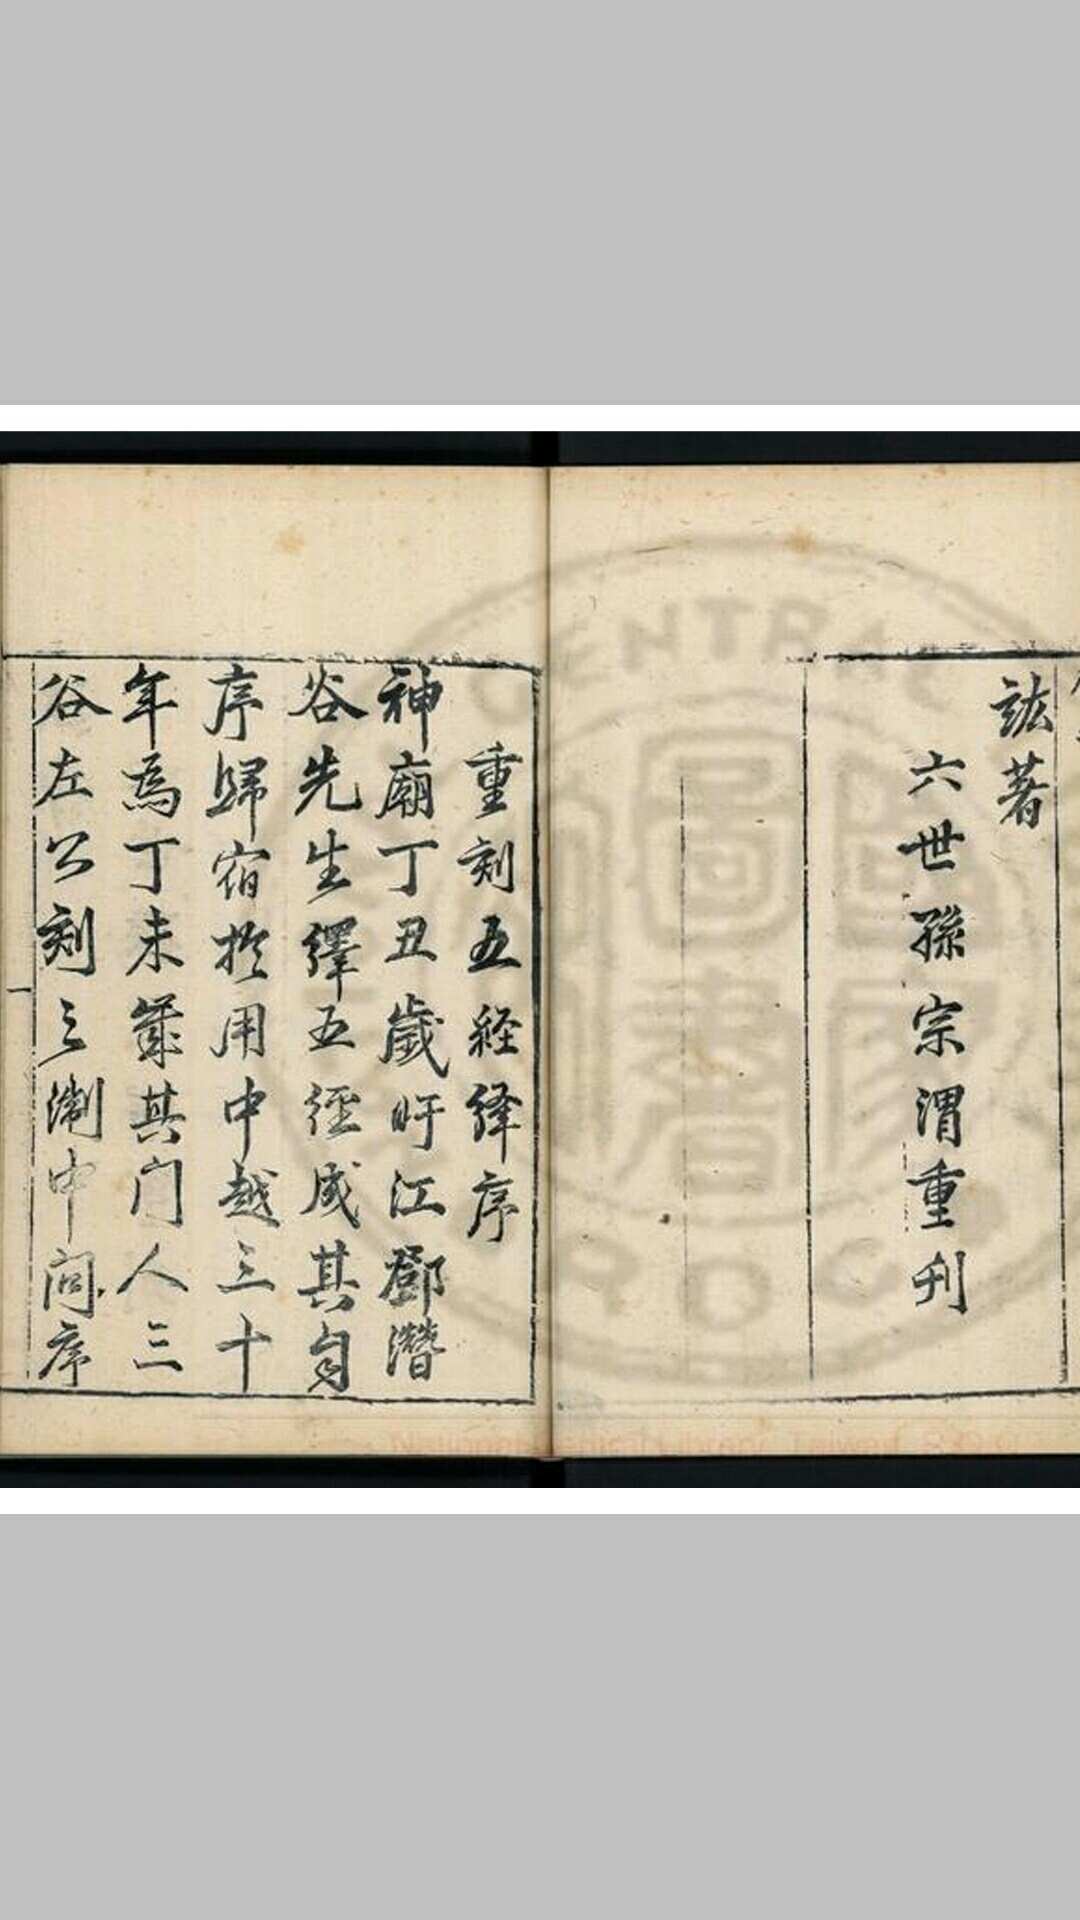 諔著
六世孫宗渭重刋
重刻五經繹序
神廟丁丑歲盱江鄧潛
谷先生繹五經成其自
序歸宿扵用中越三十
年為丁未歲其門人三
谷左公刻之淛中問序
CENTRAL
圖
書